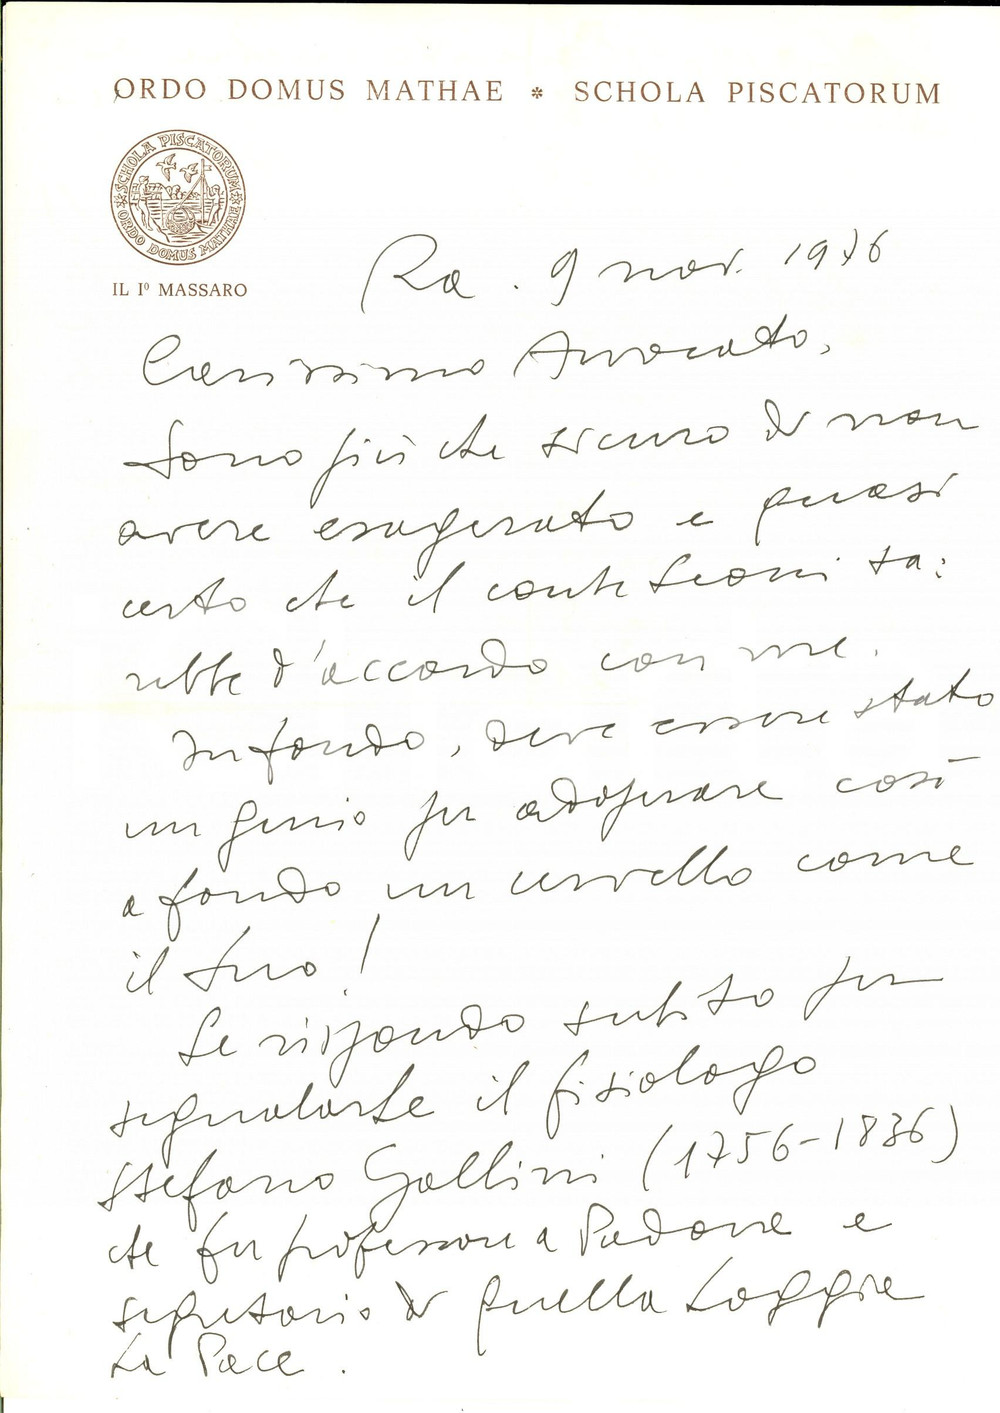 ORDO DOMUS MATHAE * SCHOLA PISCATORUM
SCHOLA PISCATORUM
ORDO DOMUS MATHAE
IL I° MASSARO
Ra. 9 nov. 1976
Carissimo Avvocato,
Sono più che sicuro di non
avere esagerato e quasi
certo che il conte Leoni sa:
rebbe d'accordo con me.
In fondo, deve essere stato
un genio per adoperare così
a fondo un cervello come
il Suo!
Le rispondo subito per
segnalarLe il fisiologo
Stefano Gallini (1756-1836)
che fu professore a Padova e
segretario di quella Loggia
La Pace.